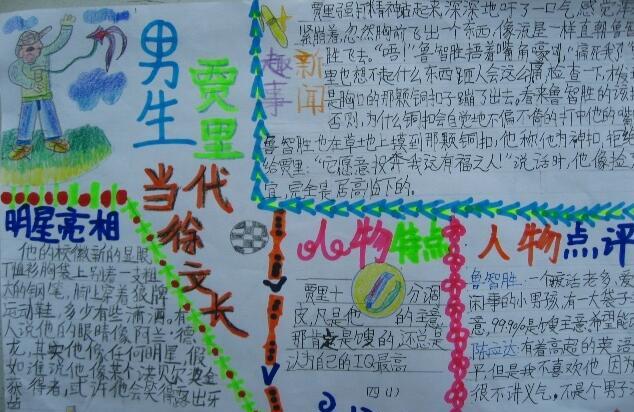 男生
贾里
当代
徐文长
趣事
新闻
贾里强打精神站起来,深深地吁了一口气,感觉
紧绷着,忽然胸前飞出一个东西,像流星一样直朝鲁智
胜飞去。“唔!”鲁智胜捂着嘴角嚎叫,“痛死我了”
里也想不起什么东西跟人会这么痛,检查一下,
是胸口的那颗铜扣子蹦了出去。看来鲁智胜的
否则,为什么铜扣会自觉地不偏不倚的打中他的嘴
鲁智胜也在草地上摸到那颗铜扣,他称他为神扣,拒绝
给贾里:“它愿意投奔我这有福之人!”说话时,他像捡
宜,完全是
明星亮相
他的校徽新的显眼
T恤衫胸袋上别着一支粗
大的钢笔,脚上穿着狼牌
运动鞋,多少有些潇洒,有
人说他的眼睛像阿兰·德
龙,其实他像任何明星,假
如谁说他像某个诺贝尔奖金
获得者,
人物特点
贾里十分调
皮,凡是他的主意
那肯定是馊的,还总是
认为自己的IQ最高
四(1)
人物点评
鲁智胜:一个废话老多,爱
闲事的小男孩,有一大袋子
意,99.9%是馊主意,希望能
陈应达:有着高超的英语
平,但是我不喜欢他,因为
很不讲义气,不是个男子